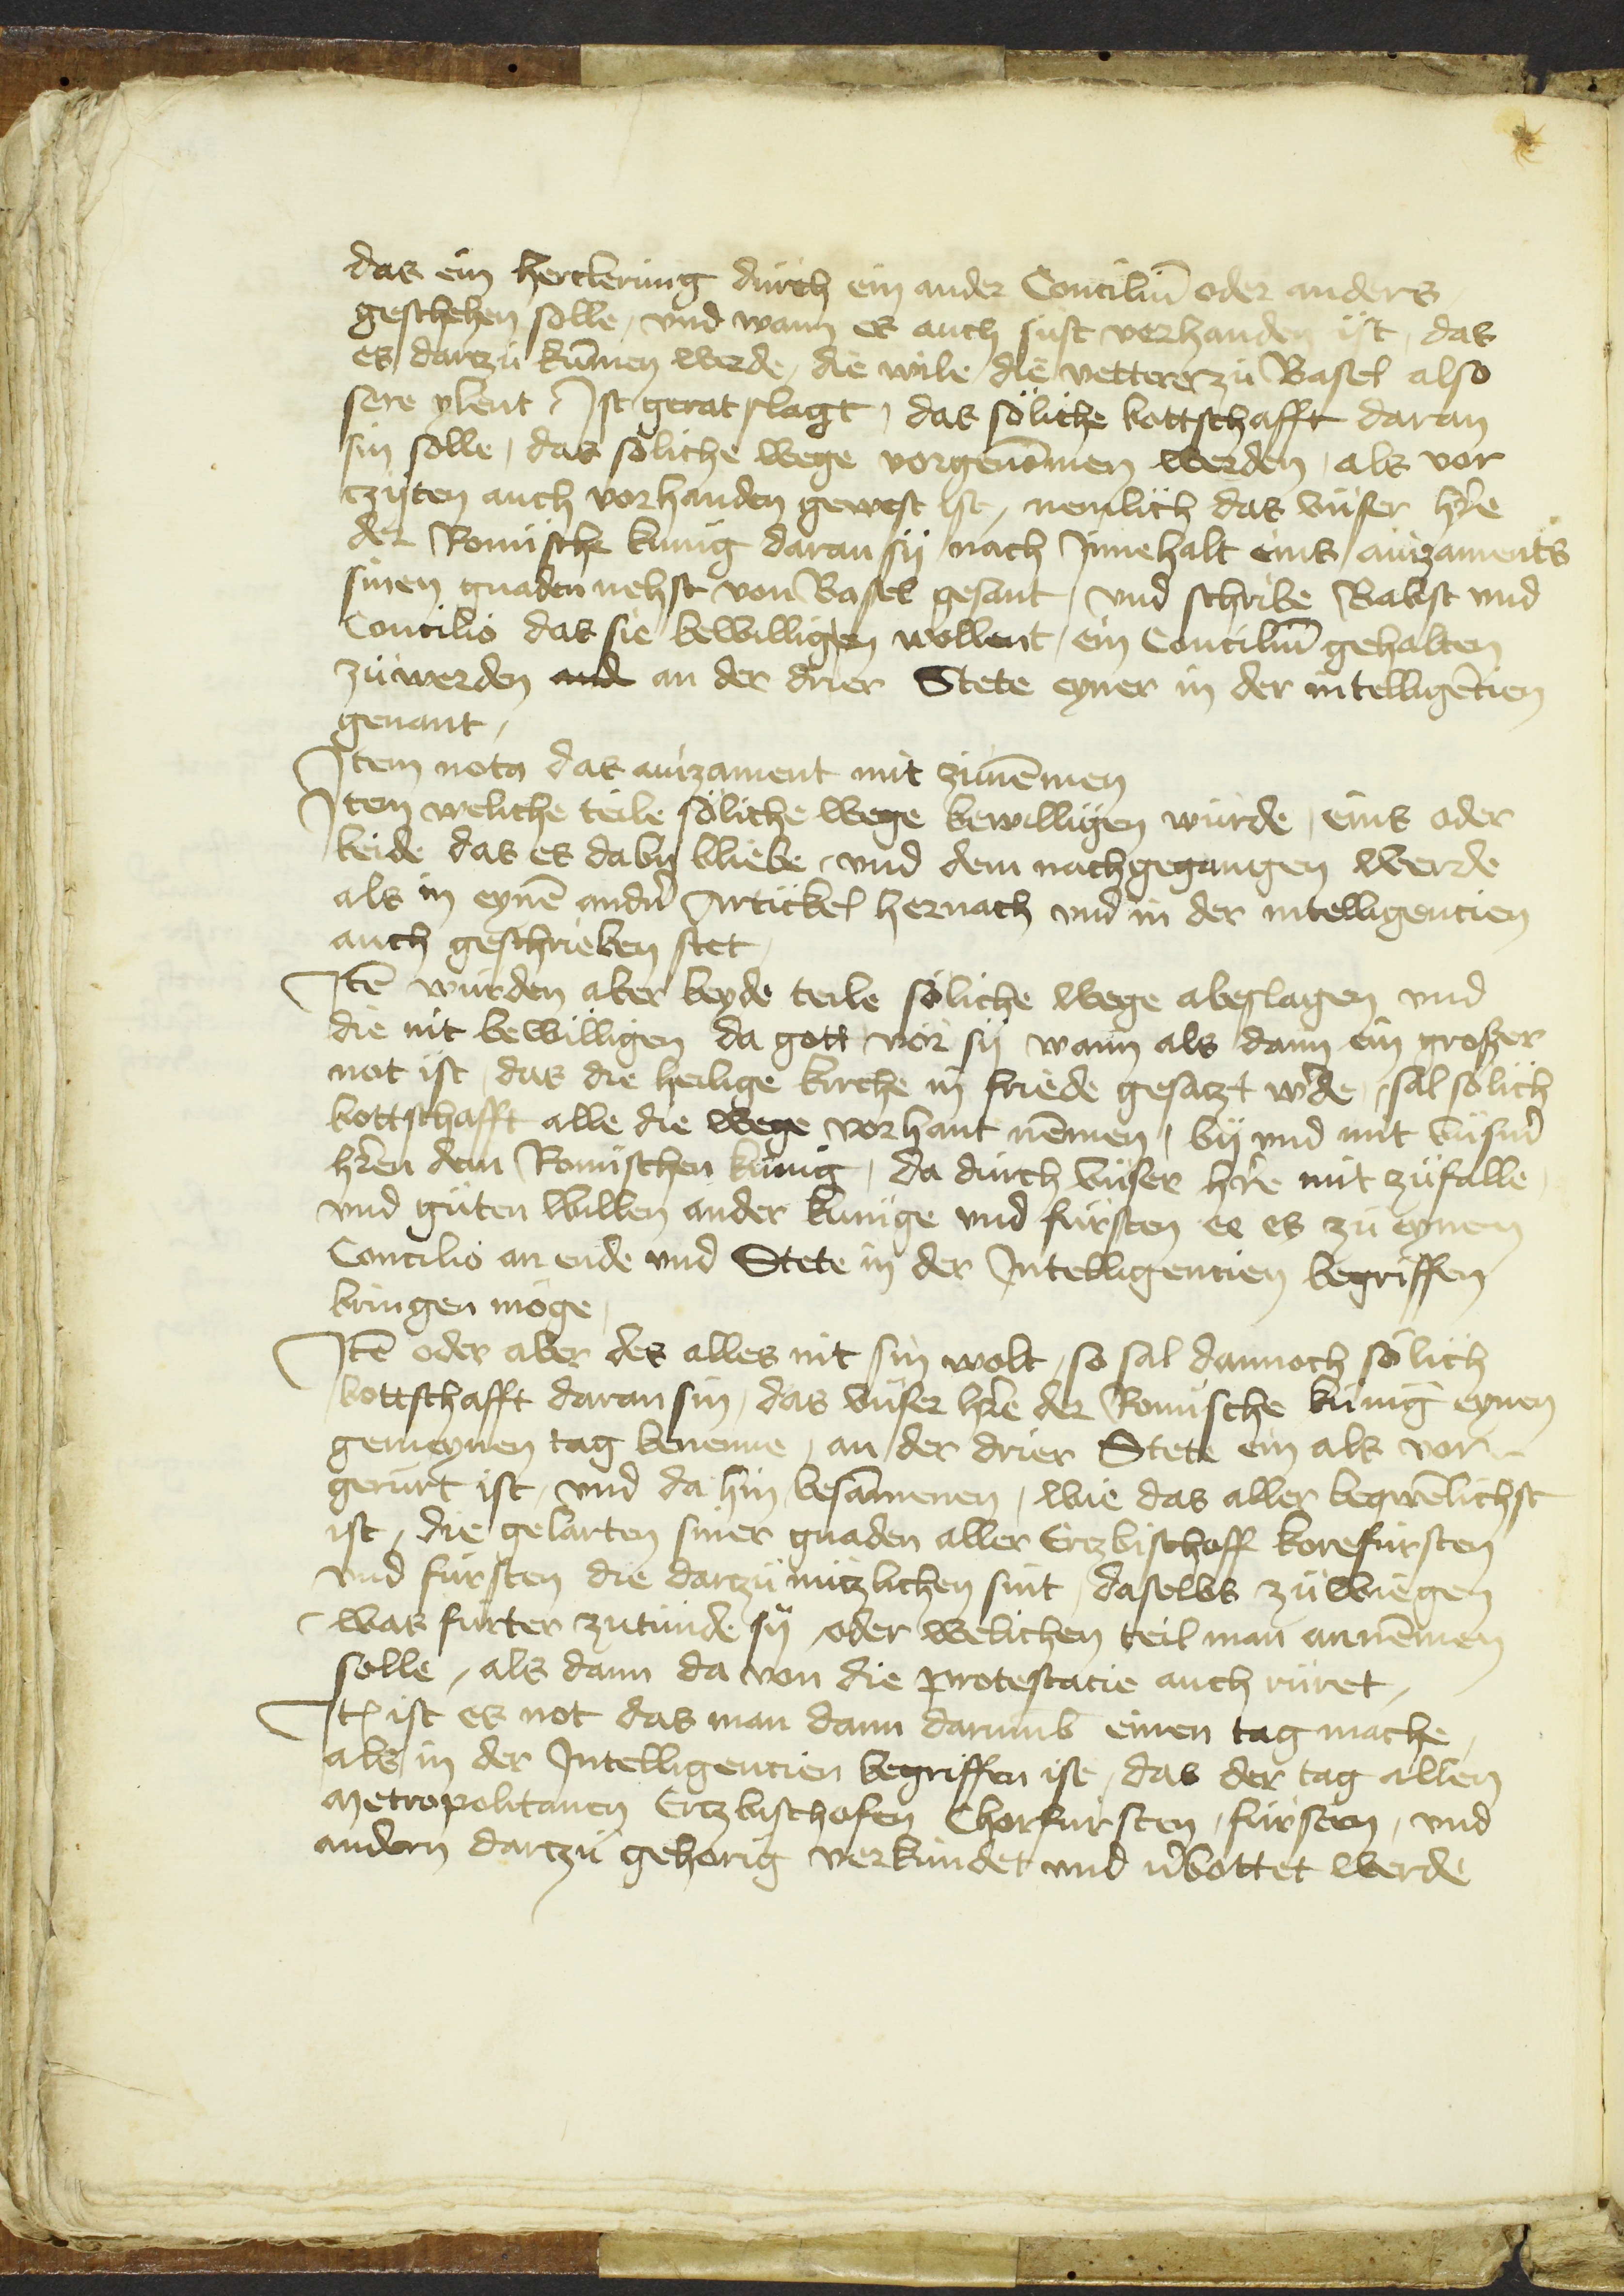 das ein herckerung durch ein ander Conciliu̅ oder anders
geschehen solle, vnd wann es auch sust vorhanden ist, das
es dartzu ku̅men werde, die wile die vetterer zu Basel also
sere ylent, Ist geratslagt, das söliche bottschafft daran
sin solle, das soliche wege vorgeno̅men werden, als vor
tzyten auch vorhanden gewest ist, nemlich das vnser h̓re
der Romische kunig daran sij nach Innehalt eins auizaments
sinen gnaden nehst von Basel gesant, vnd schribe Babst vnd
Concilio das sie bewilligen wollent, ein Conciliu̅ gehalten
zu werden an der drier Stete eyner in der intellige̅cien
genant,
Item nota das auizament mit zu ne̅men
Item weliche teile söliche wege bewilligen würde, eins oder
beide das es daby bliebe, vnd dem nachgegangen werde
als in eyne̅ andn̓ Artickel hernach vnd in der intelligencien
auch geschrieben stet,
Ite̅ würden aber beyde teile söliche wege abeslagen vnd
die nit bewilligen da gott vor sij wann als dann ein groszer
not ist, das die heilige kirche in friede gesatzt w̓de, sal sölich
bottschafft alle die wege vorhant ne̅men, bij vnd mit vnsm̓
h̓ren dem Romischen kunig, da durch vnser h̓re mit zufalle
vnd guten willen ander kunige vnd fursten ee es zu eynem
Concilio an ende vnd Stete in der Intelligencien begriffen
bringen möge,
Ite̅ oder aber des alles nit sin wolt, so sal dannoch sölich
bottschafft daran sin, das vnser h̓re der Romische kunig eynen
gemeynen tag benenne, an der drier Stete ein als vor
gerurt ist, vnd da hin besa̅menen, wie das aller beqwe̅lichst
ist, die gelarten siner gnaden aller Ertzbischoff korefursten
vnd fursten die dartzu nutzlichen sint, daselbs zu wiegen
was furter zutunde sij oder welichen teil man anne̅men
solle, als dann da von die protestacie auch rüret,
Ite̅ ist es not das man dann darumb einen tag mache,
als in der Intelligencien begriffen ist, das der tag allen
Metropolitanen Ertzbischofen Chorfursten, fursten, vnd
andern dartzu gehorig verkundet vnd v̓bottet werde